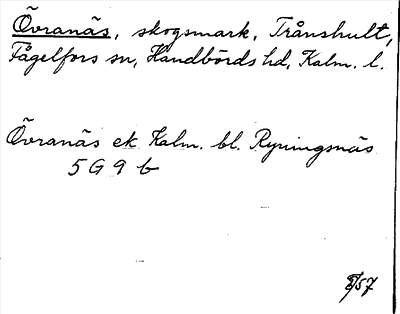 Övranäs, skogsmark, Trånshult,
Fågelfors sn, Handbörds hd, Kalm. l.
Övranäs ek Kalm. bl. Ryningsnäs
5 G 9 b